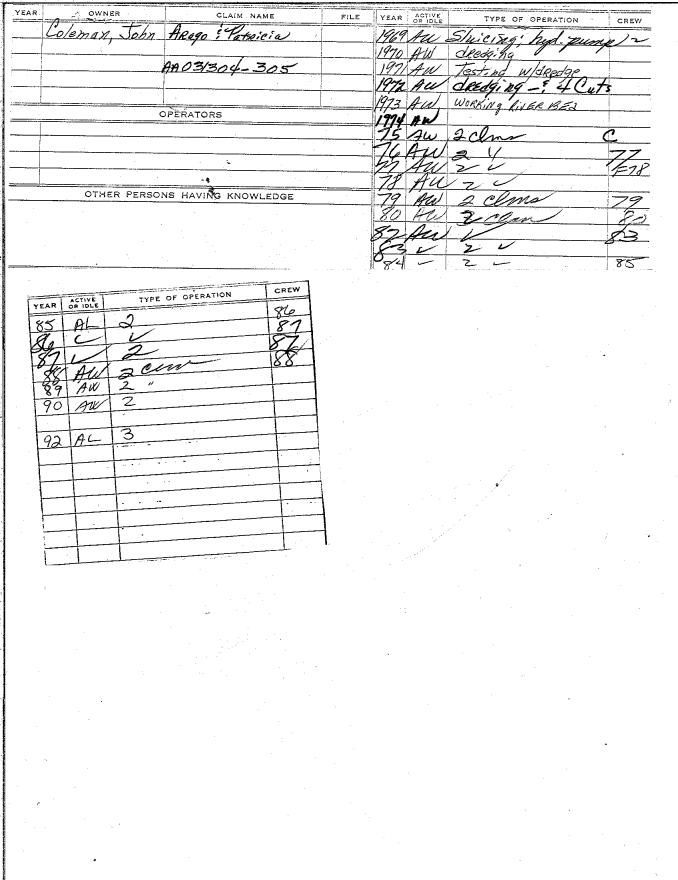 YEAR OWNER CLAIM NAME FILE
Coleman, John Arago & Patricia
AA031304-305
OPERATORS
OTHER PERSONS HAVING KNOWLEDGE
YEAR ACTIVE OR IDLE TYPE OF OPERATION CREW
1969 AW Sluicing; hyd. pump 2
1970 AW dredging
1971 AW Testing w/dredge
1972 AW dredging - & 4 Cuts
1973 AW WORKING RIVER BED
1974 AW
75 AW 2 clms C
76 AW 2 77
77 AW 2 ✓ F78
78 AW 2 ✓
79 AW 2 clms 79
80 AW 2 clam 80
82 AW ✓ 83
83 ✓ 2 ✓
84 ✓ 2 ✓ 85
YEAR ACTIVE OR IDLE TYPE OF OPERATION CREW
85 AL 2 86
86 ✓ ✓ 87
87 ✓ 2 87
88 AW 2 clm 88
89 AW 2 "
90 AW 2
92 AL 3